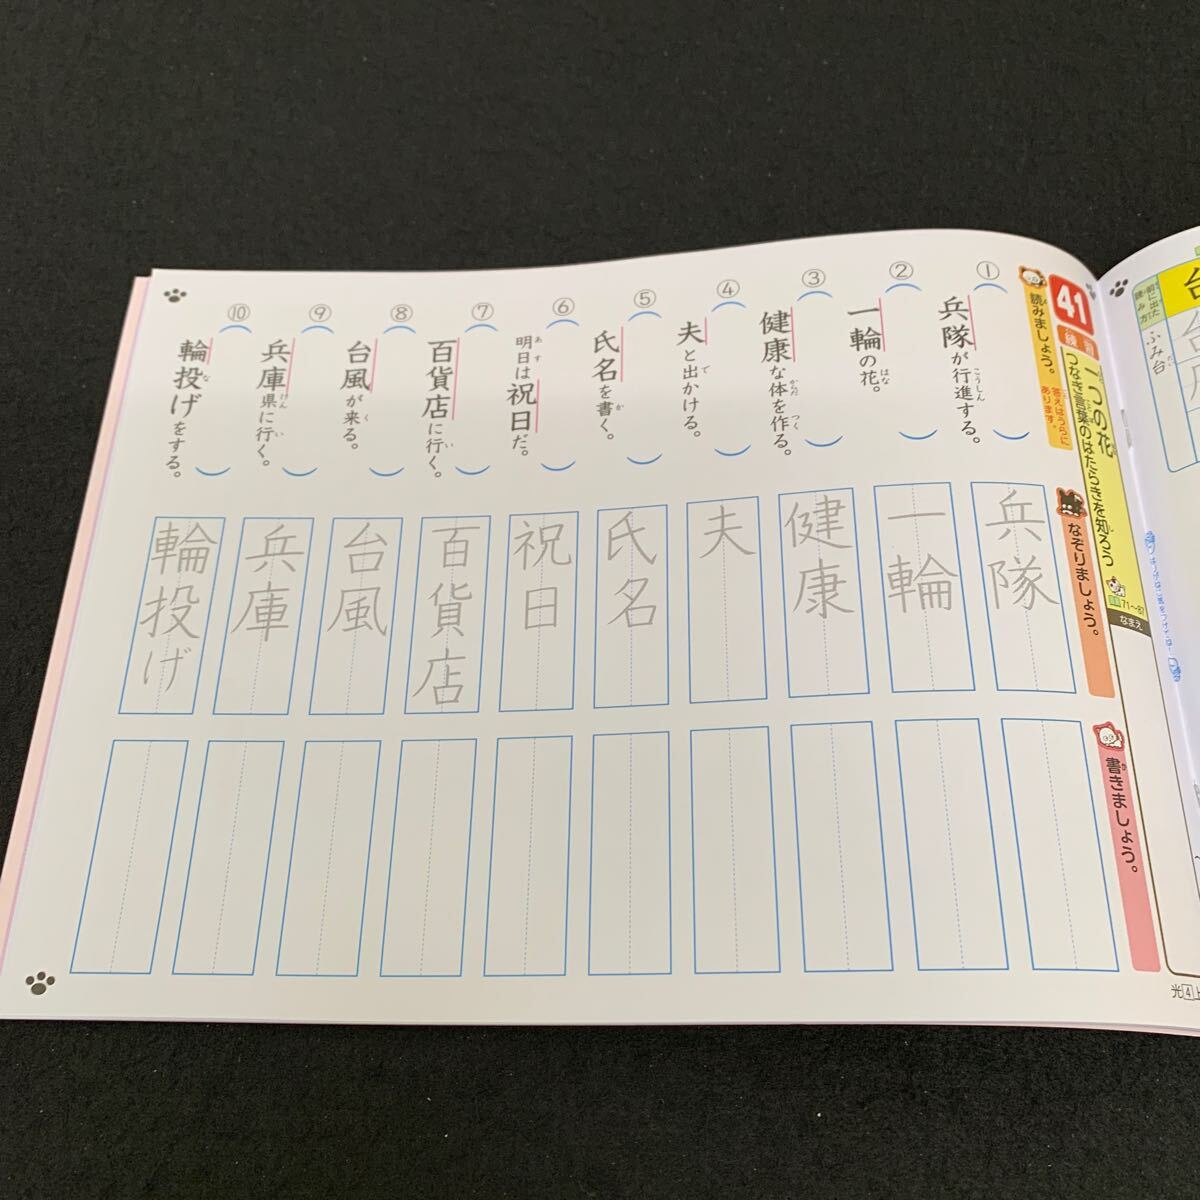 41
練習
一つの花
つなぎ言葉のはたらきを知ろう
71〜87
なまえ
読みましょう。
答えはうらにあります。
① 兵隊が行進する。
② 一輪の花。
③ 健康な体を作る。
④ 夫と出かける。
⑤ 氏名を書く。
⑥ 明日は祝日だ。
⑦ 百貨店に行く。
⑧ 台風が来る。
⑨ 兵庫県に行く。
⑩ 輪投げをする。
なぞりましょう。
兵隊
一輪
健康
夫
氏名
祝日
百貨店
台風
兵庫
輪投げ
書きましょう。
前に出た読み方
ふみ台
台
光4上